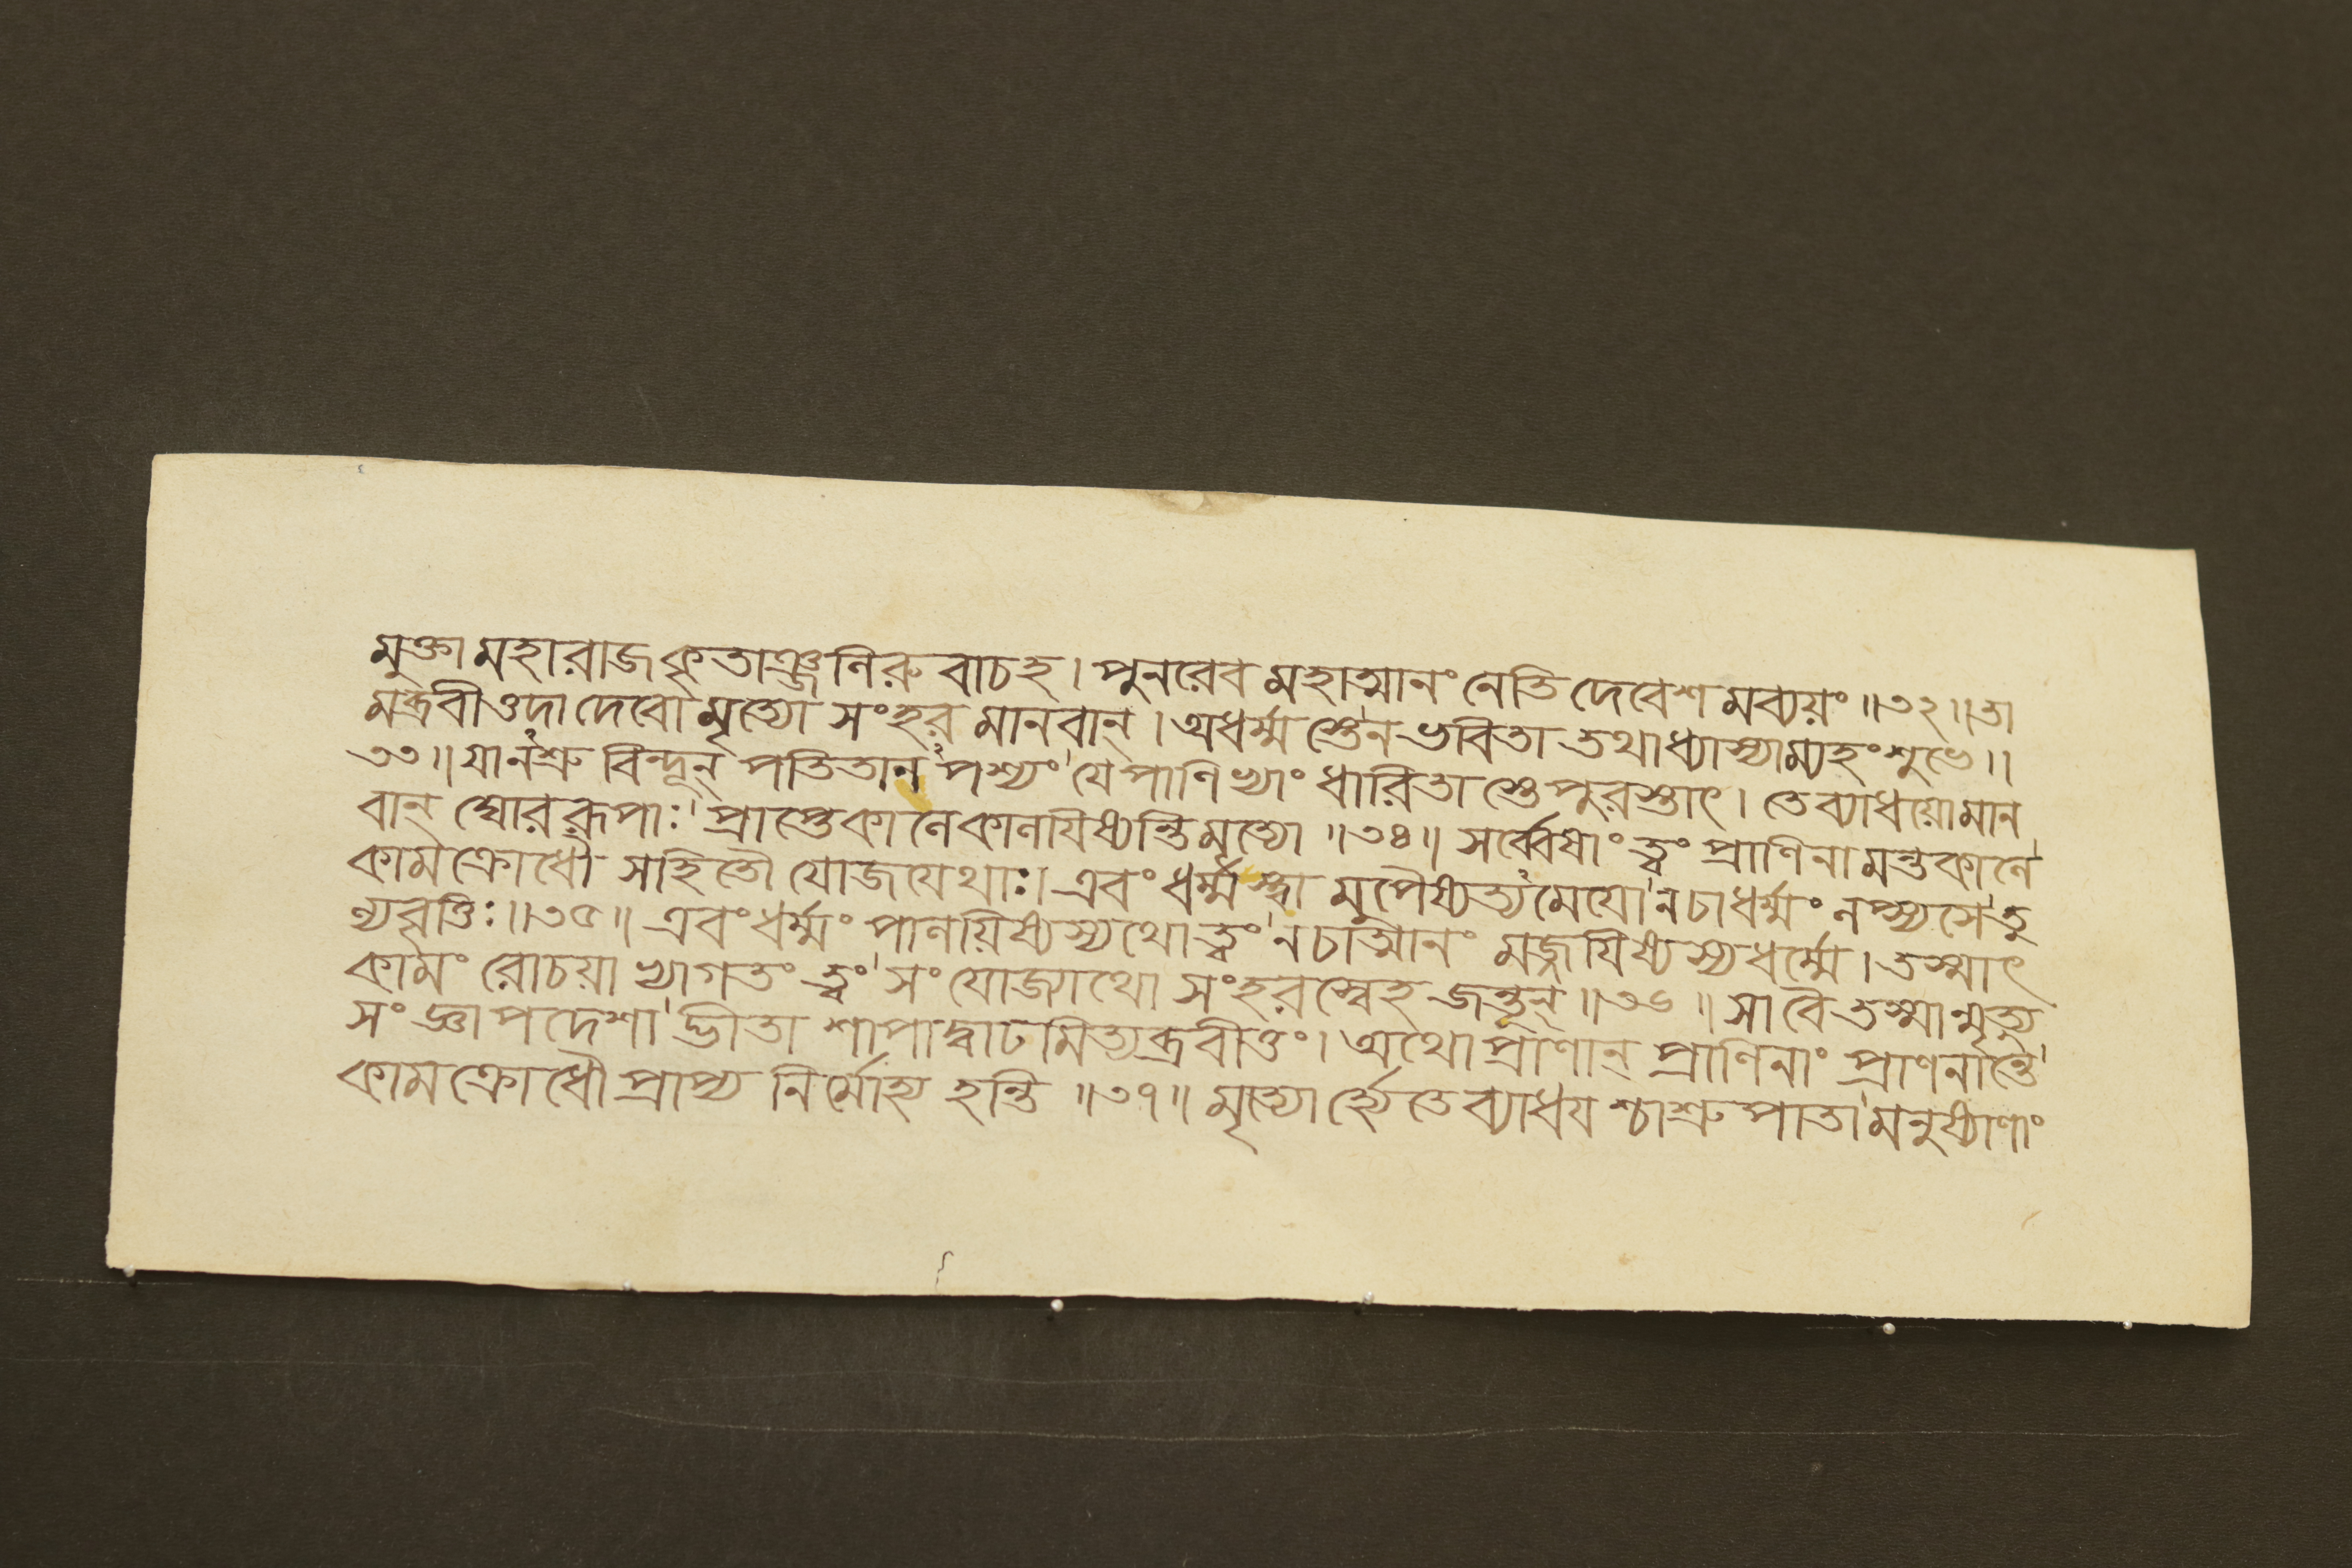 মুক্তা মহারাজ কৃতাঞ্জলিরু বাচহ। পুনরেব মহাত্মানং নেতি দেবেশ মব্যয়ং ॥৩২॥ তা
মব্রবীত্তদা দেবো মৃত্যো সংহর মানবান্। অধর্ম্ম স্তেন ভবিতা তথাধ্যাস্যাম্যহং শুভে॥
৩৩॥ যানশ্রু বিন্দূন্ পতিতান পশ্যং যে পাণিভ্যাং ধারিতা স্তে পুরস্তাৎ। তে ব্যাধয়ো মান
বান্ ঘোররূপাঃ প্রাপ্তে কালে কালযিষ্যন্তি মৃত্যো ॥৩৪॥ সর্ব্বেষাং ত্বং প্রাণিনামন্তকালে
কাম ক্রোধৌ সহিতৌ যোজযেথাঃ। এবং ধর্ম্ম স্ত্বা মুপৈষ্যত্য মেযো নচাধর্ম্মং লপ্স্যসে তু
ল্যবৃত্তিঃ॥৩৫॥ এবং ধর্ম্মং পালয়িষ্যস্যথো ত্বং নচাত্মানং মজ্জযিষ্যস্যধর্ম্মে। তস্মাৎ
কামং রোচয়া ভ্যাগতং ত্বং সংযোজ্যাথো সংহরস্বেহ জন্তূন্॥৩৬॥ সা বৈ তস্মান্মৃত্যু
সংজ্ঞাপদেশা দ্ভীতা শাপাদ্বাঢ মিত্যব্রবীত্তং। অথো প্রাণান্ প্রাণিনাং প্রাণনান্তে
কাম ক্রোধৌ প্রাপ্য নির্মোহ্য হন্তি ॥৩৭॥ মৃত্যোর্হ্যেতে ব্যাধয শ্চাশ্রু পাতা মনুষ্যাণাং